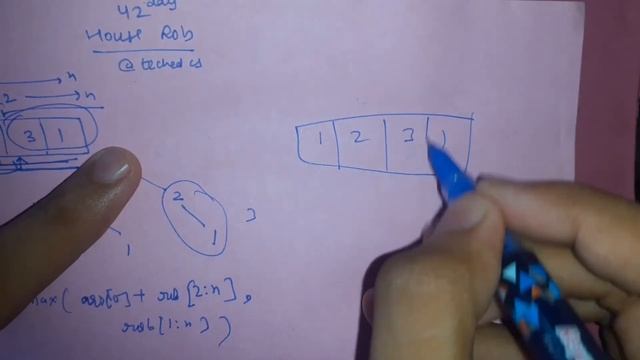 42 day
House Rob
@ teched cs
n
2 → n
3 1
1 2 3 1
2
1
3
1
max( arr[0] + rob[2:n],
rob[1:n] )